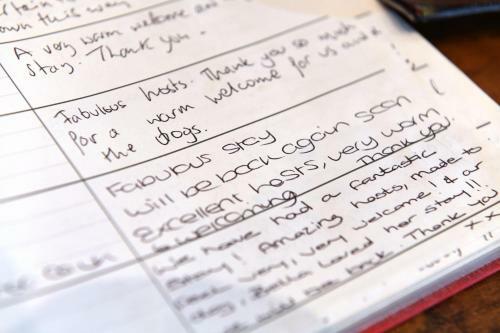 own this way
A very warm welcome and
stay. Thank you.
Fabulous hosts. Thank you so much
for a warm welcome for us and
the dogs.
Fabulous stay
will be back again soon
Excellent hosts, very warm
& welcoming Thank you.
We have had a fantastic
stay! Amazing hosts, made to
feel very, very welcome! & our
dog, loved her stay!!
will be back. Thank you
xx